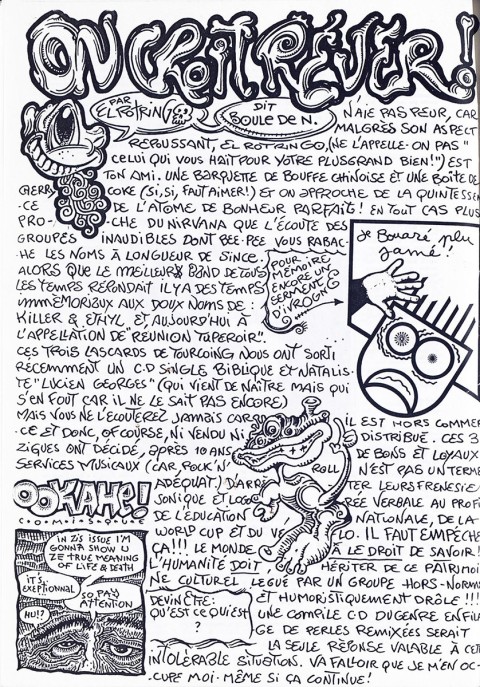 ON CROIT RÊVER!
PAR EL ROTRINGO
DIT BOULE DE N.
N'AIE PAS PEUR, CAR
MALGRÈS SON ASPECT
REPOUSSANT, EL ROTRINGO, (NE L'APPELLE-ON PAS "
CELUI QUI VOUS HAIT POUR VOTRE PLUSGRAND BIEN!") EST
TON AMI. UNE BARQUETTE DE BOUFFE CHINOISE ET UNE BOÎTE DE
COKE (SI, SI, FAUT AIMER!) ET ON APPROCHE DE LA QUINTESSEN
CE DE L'ATOME DE BONHEUR PARFAIT! EN TOUT CAS PLUS
PRO- CHE DU NIRVANA QUE L'ÉCOUTE DES
GROUPES INAUDIBLES DONT BEE-PEE VOUS RABAC-
HE LES NOMS À LONGUEUR DE SINCE.
ALORS QUE LE MEILLEUR BAND DE TOUS
LES TEMPS RÉPONDAIT IL YA DES TEMPS
IMMÉMORIAUX AUX DOUX NOMS DE:
KILLER & ETHYL ET, AUJOURD'HUI À
L'APPELLATION DE "RÉUNION TUPEROIR".
CES TROIS LASCARDS DE TOURCOING NOUS ONT SORTI
RÉCEMMENT UN C.D SINGLE BIBLIQUE ET NATALIS-
TE "LUCIEN GEORGES" (QUI VIENT DE NAÎTRE MAIS QUI
S'EN FOUT CAR IL NE LE SAIT PAS ENCORE)
MAIS VOUS NE L'ÉCOUTEREZ JAMAIS CAR IL EST HORS COMMER
CE ET DONC, OF COURSE, NI VENDU NI DISTRIBUÉ. CES 3
ZIGUES ONT DÉCIDÉ, APRÈS 10 ANS DE BONS ET LOYAUX
SERVICES MUSICAUX (CAR, ROCK'N' ROLL N'EST PAS UN TERME
ADÉQUAT) D'ARRÊ TER LEURS FRENESIE
SONIQUE ET LOGO RÉE VERBALE AU PROFI
DE L'ÉDUCATION NATIONALE, DE LA
WORLD CUP ET DU VÉ LO. IL FAUT EMPÊCHE
ÇA!!! LE MONDE À LE DROIT DE SAVOIR!
L'HUMANITÉ DOIT HÉRITER DE CE PATRIMOI
NE CULTUREL LEGUÉ PAR UN GROUPE HORS-NORME
ET HUMORISTIQUEMENT DRÔLE!!!
UNE COMPILE CD DU GENRE ENFILA
GE DE PERLES REMIXÉES SERAIT
LA SEULE RÉPONSE VALABLE À CETT
INTOLÉRABLE SITUATION. VA FALLOIR QUE JE M'EN OC-
CUPE MOI-MÊME SI ÇA CONTINUE!
POUR MÉMOIRE
ENCORE UN
SERMENT
D'IVROGNE
Je Bouaré plu
jamé!
OOKAHE!
COMIXSQUAT
IN ZIS ISSUE I'M
GONNA SHOW U
ZE TRUE MEANING
OF LIFE & DEATH
IT'S
EXEPTIONNAL
SO PAY
ATTENTION
HU!?
DEVINETTE:
QU'EST CE QUI EST
?